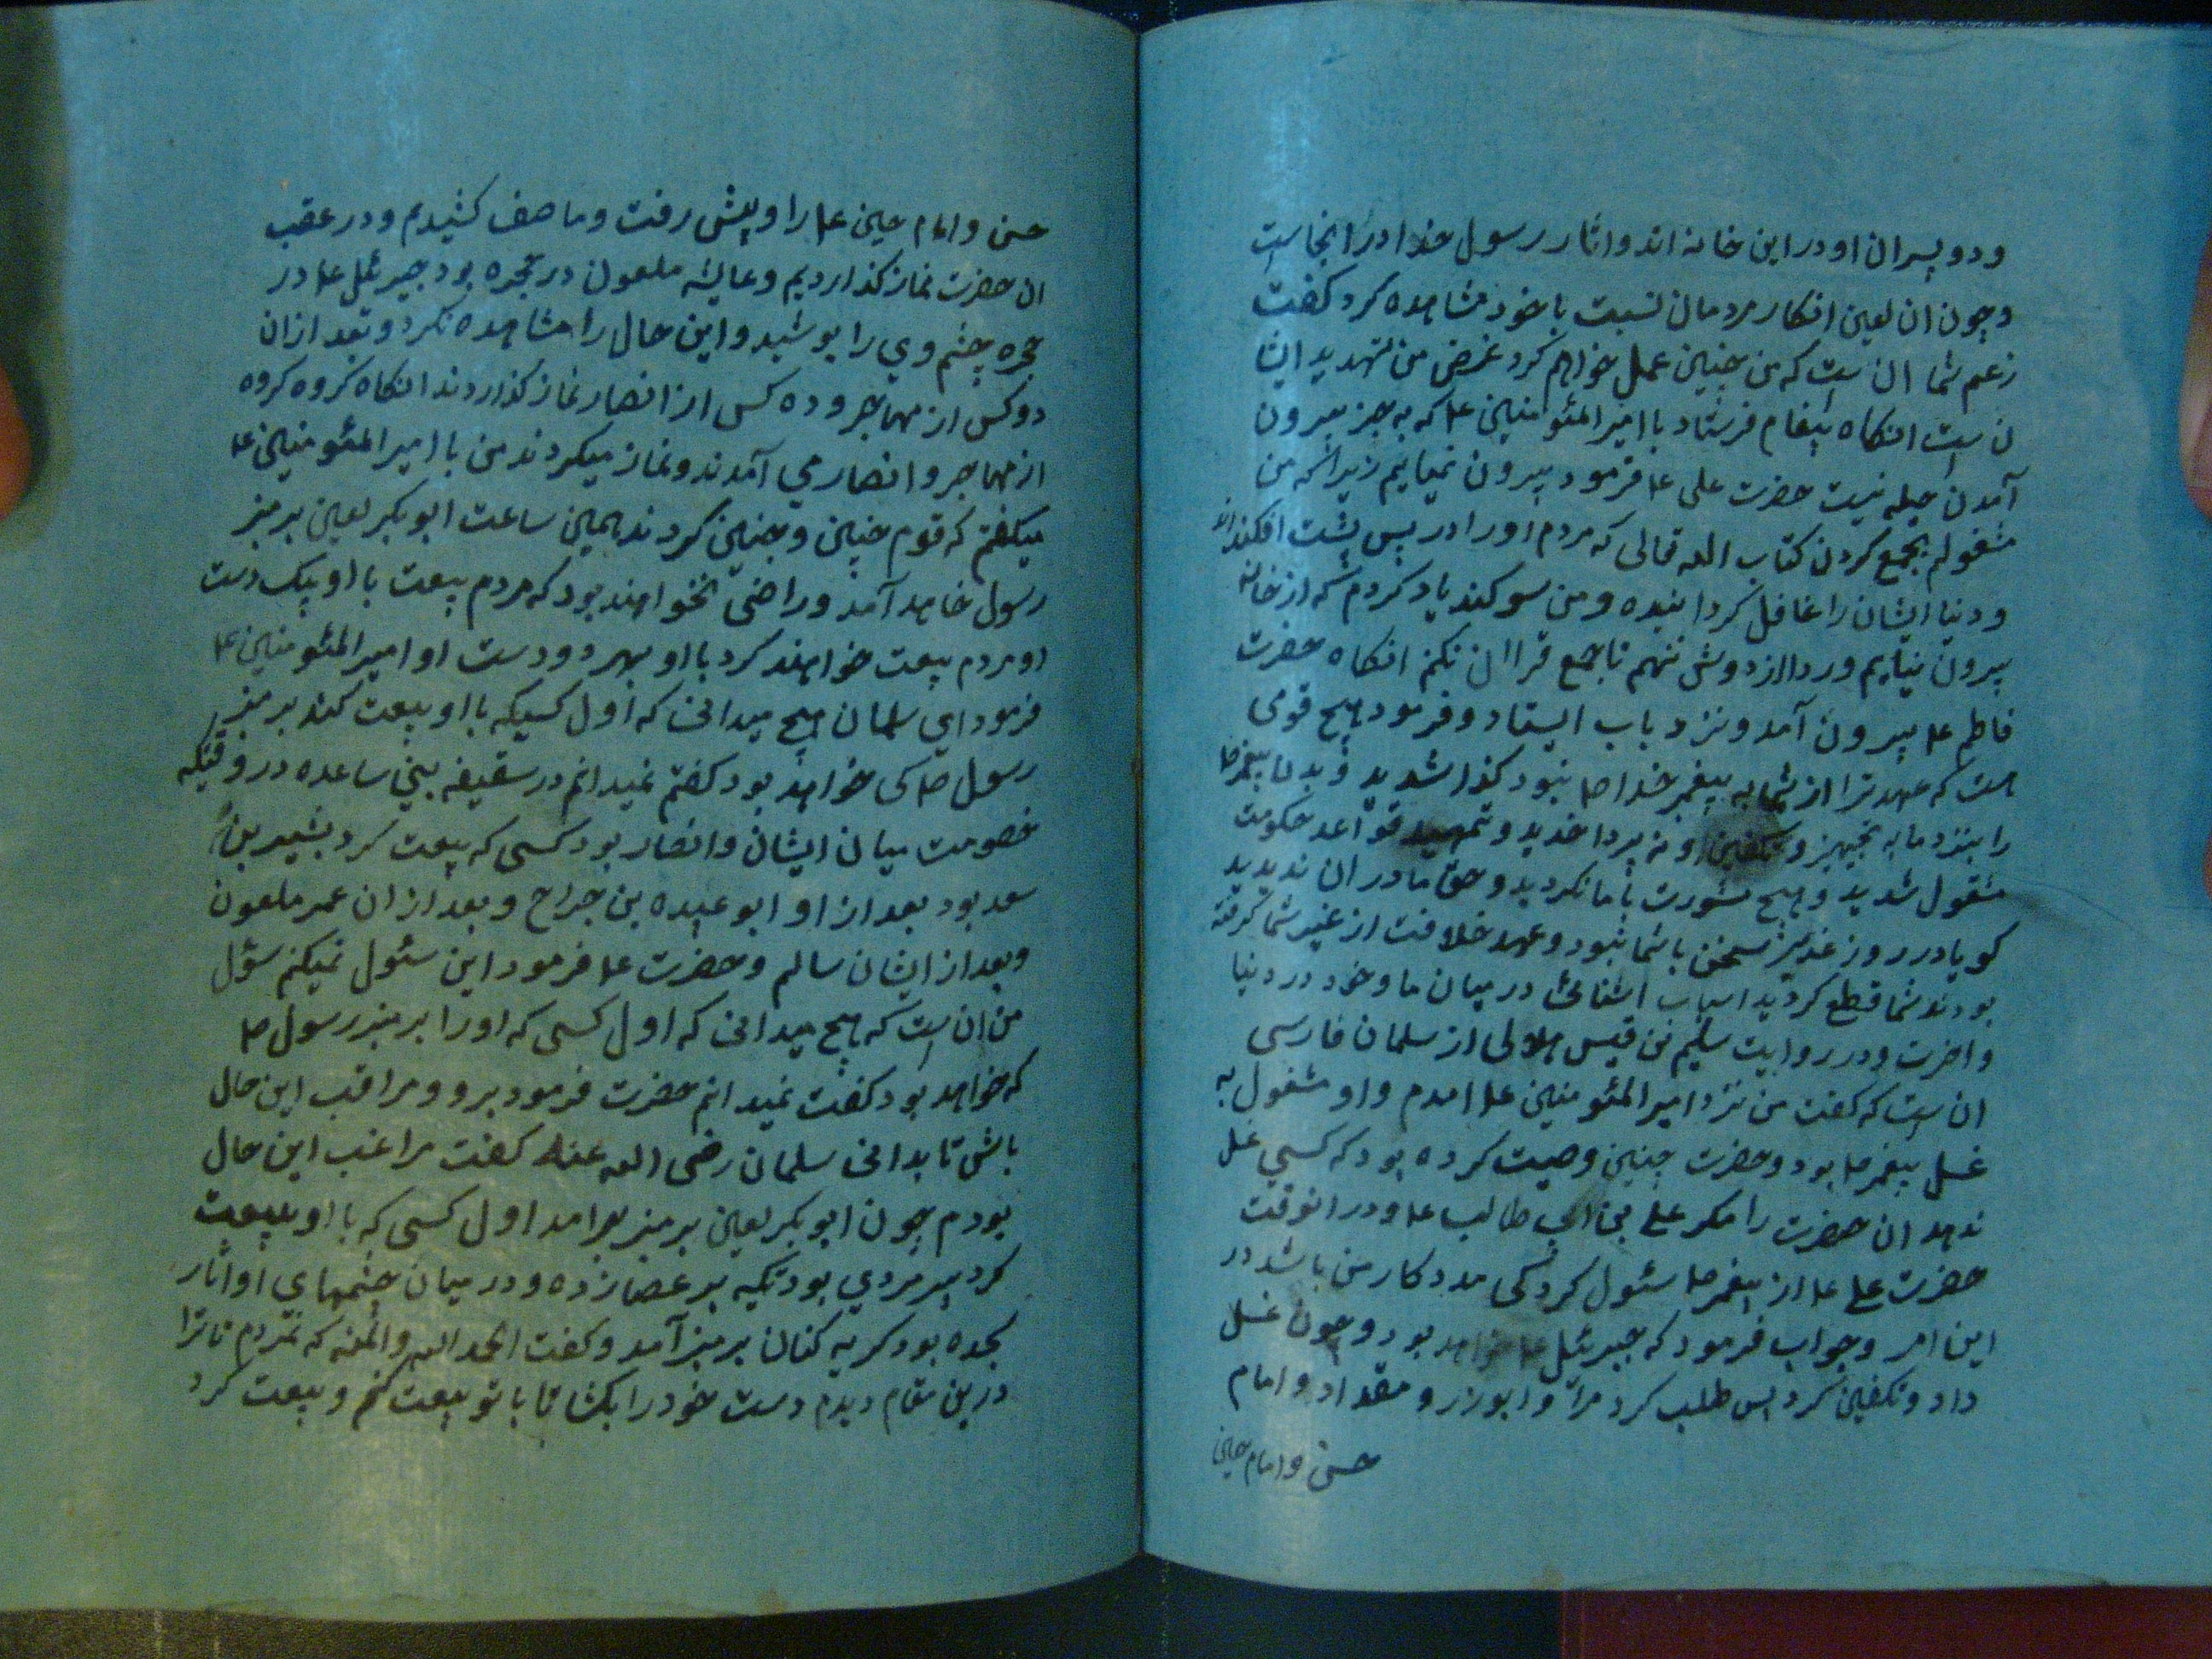 ودو پسران او در این خانه اند واثار رسول خدا در انجاست
وچون ان لعین انکار مردمان نسبت با خود مشاهده کرد کفت
زعم شما ان ست که من چنین عمل خواهم کرد غرض من تهدید ایشا
ن ست انکاه پیغام فرستاد با امیر المئومنین ع که به جز بیرون
آمدن حیله نیست حضرت علی ع فرمود بیرون نمیایم زیرا که من
مشغولم بجمع کردن کتاب الله تعالی که مردم اورا در پس پشت افکنده اند
ودنیا ایشان را غافل کردانیده ومن سوکند یاد کردم که از خانه
بیرون نیایم وردا از دوش ننهم تا جمع قراان نکنم انکاه حضرت
فاطمه ع بیرون آمد ونزد باب ایستاد وفرمود هیچ قومی
را بنزد ما به تجهیز وتکفین او نه پرداخدید وتمهید قواعد حکومت
مشغول شدید وهیچ مشورت با ما نکردید وحق ما در ان ندیدید
کویا در روز غدیر سخن با شما نبود وعهد خلافت از غیر شما کرفته
بودند شما قطع کردید اسباب اشنائی در میان ما وخود در دنیا
واخرت ودر روایت سلیم بن قیس هلالی از سلمان فارسی
ان ست که کفت من نزد امیر المئومنین ع امدم واو مشغول به
غسل پیغمر ص بود وحضرت چنین وصیت کرده بود که کسی غسل
ندهد ان حضرت را مکر علی بن ابی طالب ع ودر انوقت
حضرت علی ع از پیغمر ص سئول کرد کی مددکار من باشد در
این امر وجواب فرمود که جبرئل ع خواهد بود وچون غسل
داد وتکفین کرد پس طلب کرد مرا وابوزر ومقداد وامام
حسن وامام حسین
حسن وامام حسین ع را وپیش رفت وما صف کشیدیم ودر عقب
ان حضرت نماز کذاردیم وعایشه ملعون در حجره بود جبرئل ع در
حجره چشم وی را پوشید واین حال را مشاهده نکرد وبعد ازان
دو کس از مهاجر وده کس از انصار نماز کذاردند انکاه کروه کروه
از مهاجر وانصار می آمدند ونماز میکردند من با امیر المئومنین ع
میکفتم که قوم چنین وچنین کردند همین ساعت ابوبکر لعین بر منبر
رسول خاهد آمد وراضی نخواهند بود که مردم بیعت با او بیک دست
او مردم بیعت خواهند کرد با او بهر دو دست او امیر المئومنین ع
فرمود ای سلمان هیچ میدانی که اول کسیکه با او بیعت کند بر منبر
رسول ص کی خواهد بود کفتم نمیدانم در سقیفه بنی ساعده در وقتیکه
خصومت میان ایشان وانصار بود کسی که بیعت کرد بشیر بن
سعد بود بعد از او ابو عبیده بن جراح وبعد از ان عمر ملعون
وبعد از ایشان سالم وحضرت ع فرمود این سئول نمیکنم سؤل
من ان ست که هیچ میدانی که اول کسی که اورا بر منبر رسول ص
که خواهد بود کفت نمیدانم حضرت فرمود برو ومراقب این حال
باش تا بدانی سلمان رضی الله عنه کفت مراغب این حال
بودم چون ابوبکر لعین بر منبر برامد اول کسی که با او بیعت
کرد پیر مردی بود تکیه بر عصا زده ودر میان چشمهای او اثار
سجده بود کریه کنان بر منبر آمد وکفت الحمد الله والمنه که نمردم تا ترا
درین مقام دیدم دست خود را بکشا تا با تو بیعت کنم وبیعت کرد